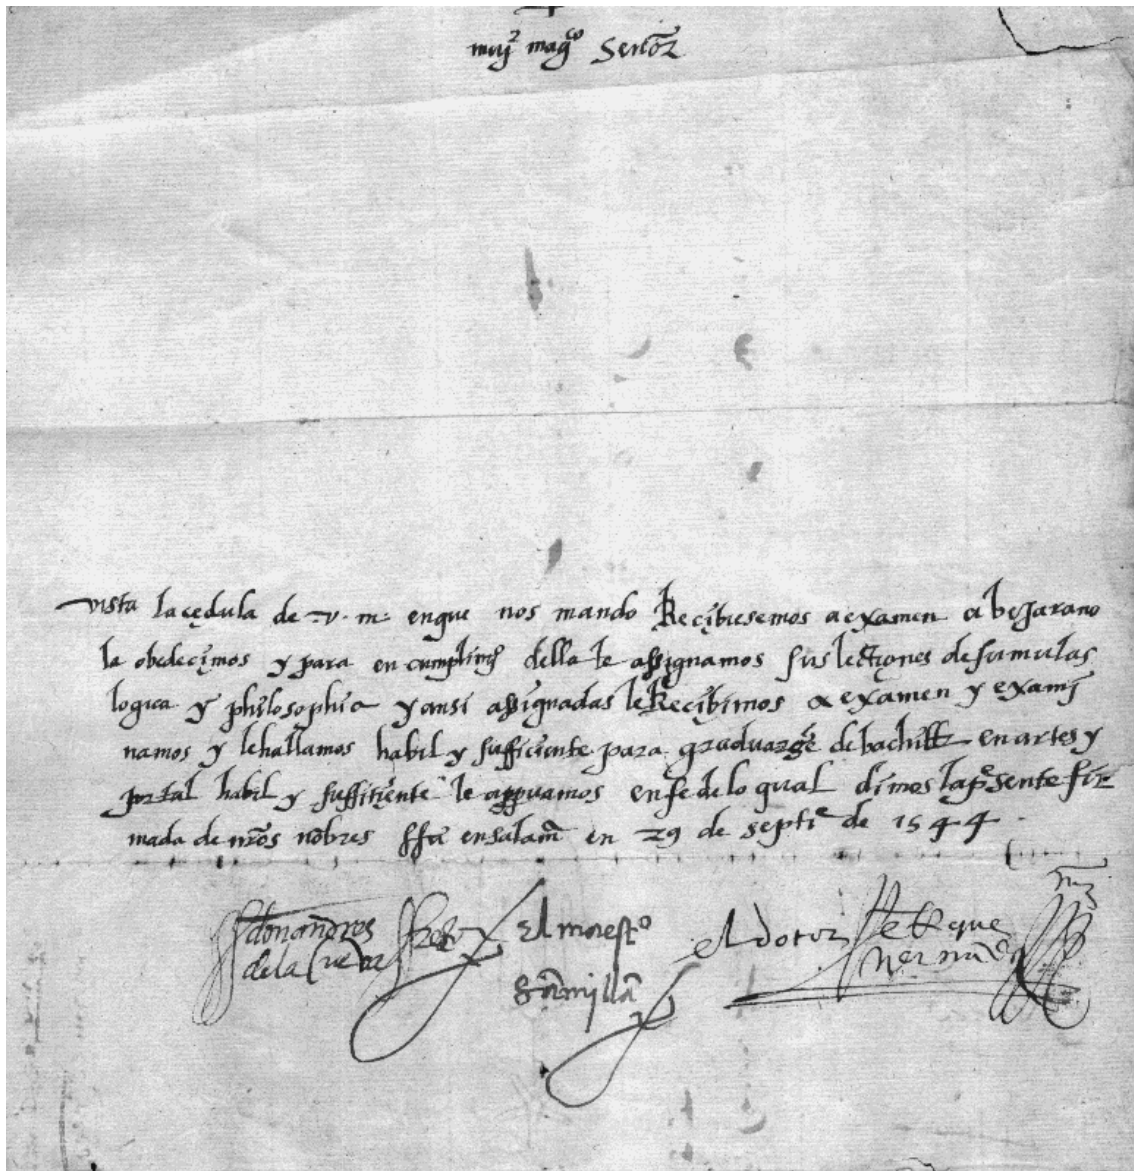 muy mag.co Señor
vista la cedula de v. m. en que nos mando Recibiesemos a examen a bejarano
le obedecimos y para en cumplimjo della le assignamos sus lectiones de sumulas
logica y philosophia y ansi assignadas le Recibimos a examen y examj
namos y le hallamos habil y sufficiente para graduarse de bachiller en artes y
por tal habil y suffitiente le appuamos en fe de lo qual dimos la psente fir
mada de nros nobres ffa en salama en 29 de septie de 1544
don andres Retor El maestro el dotor Enrique
de la Cueva Sanmillan hernandez